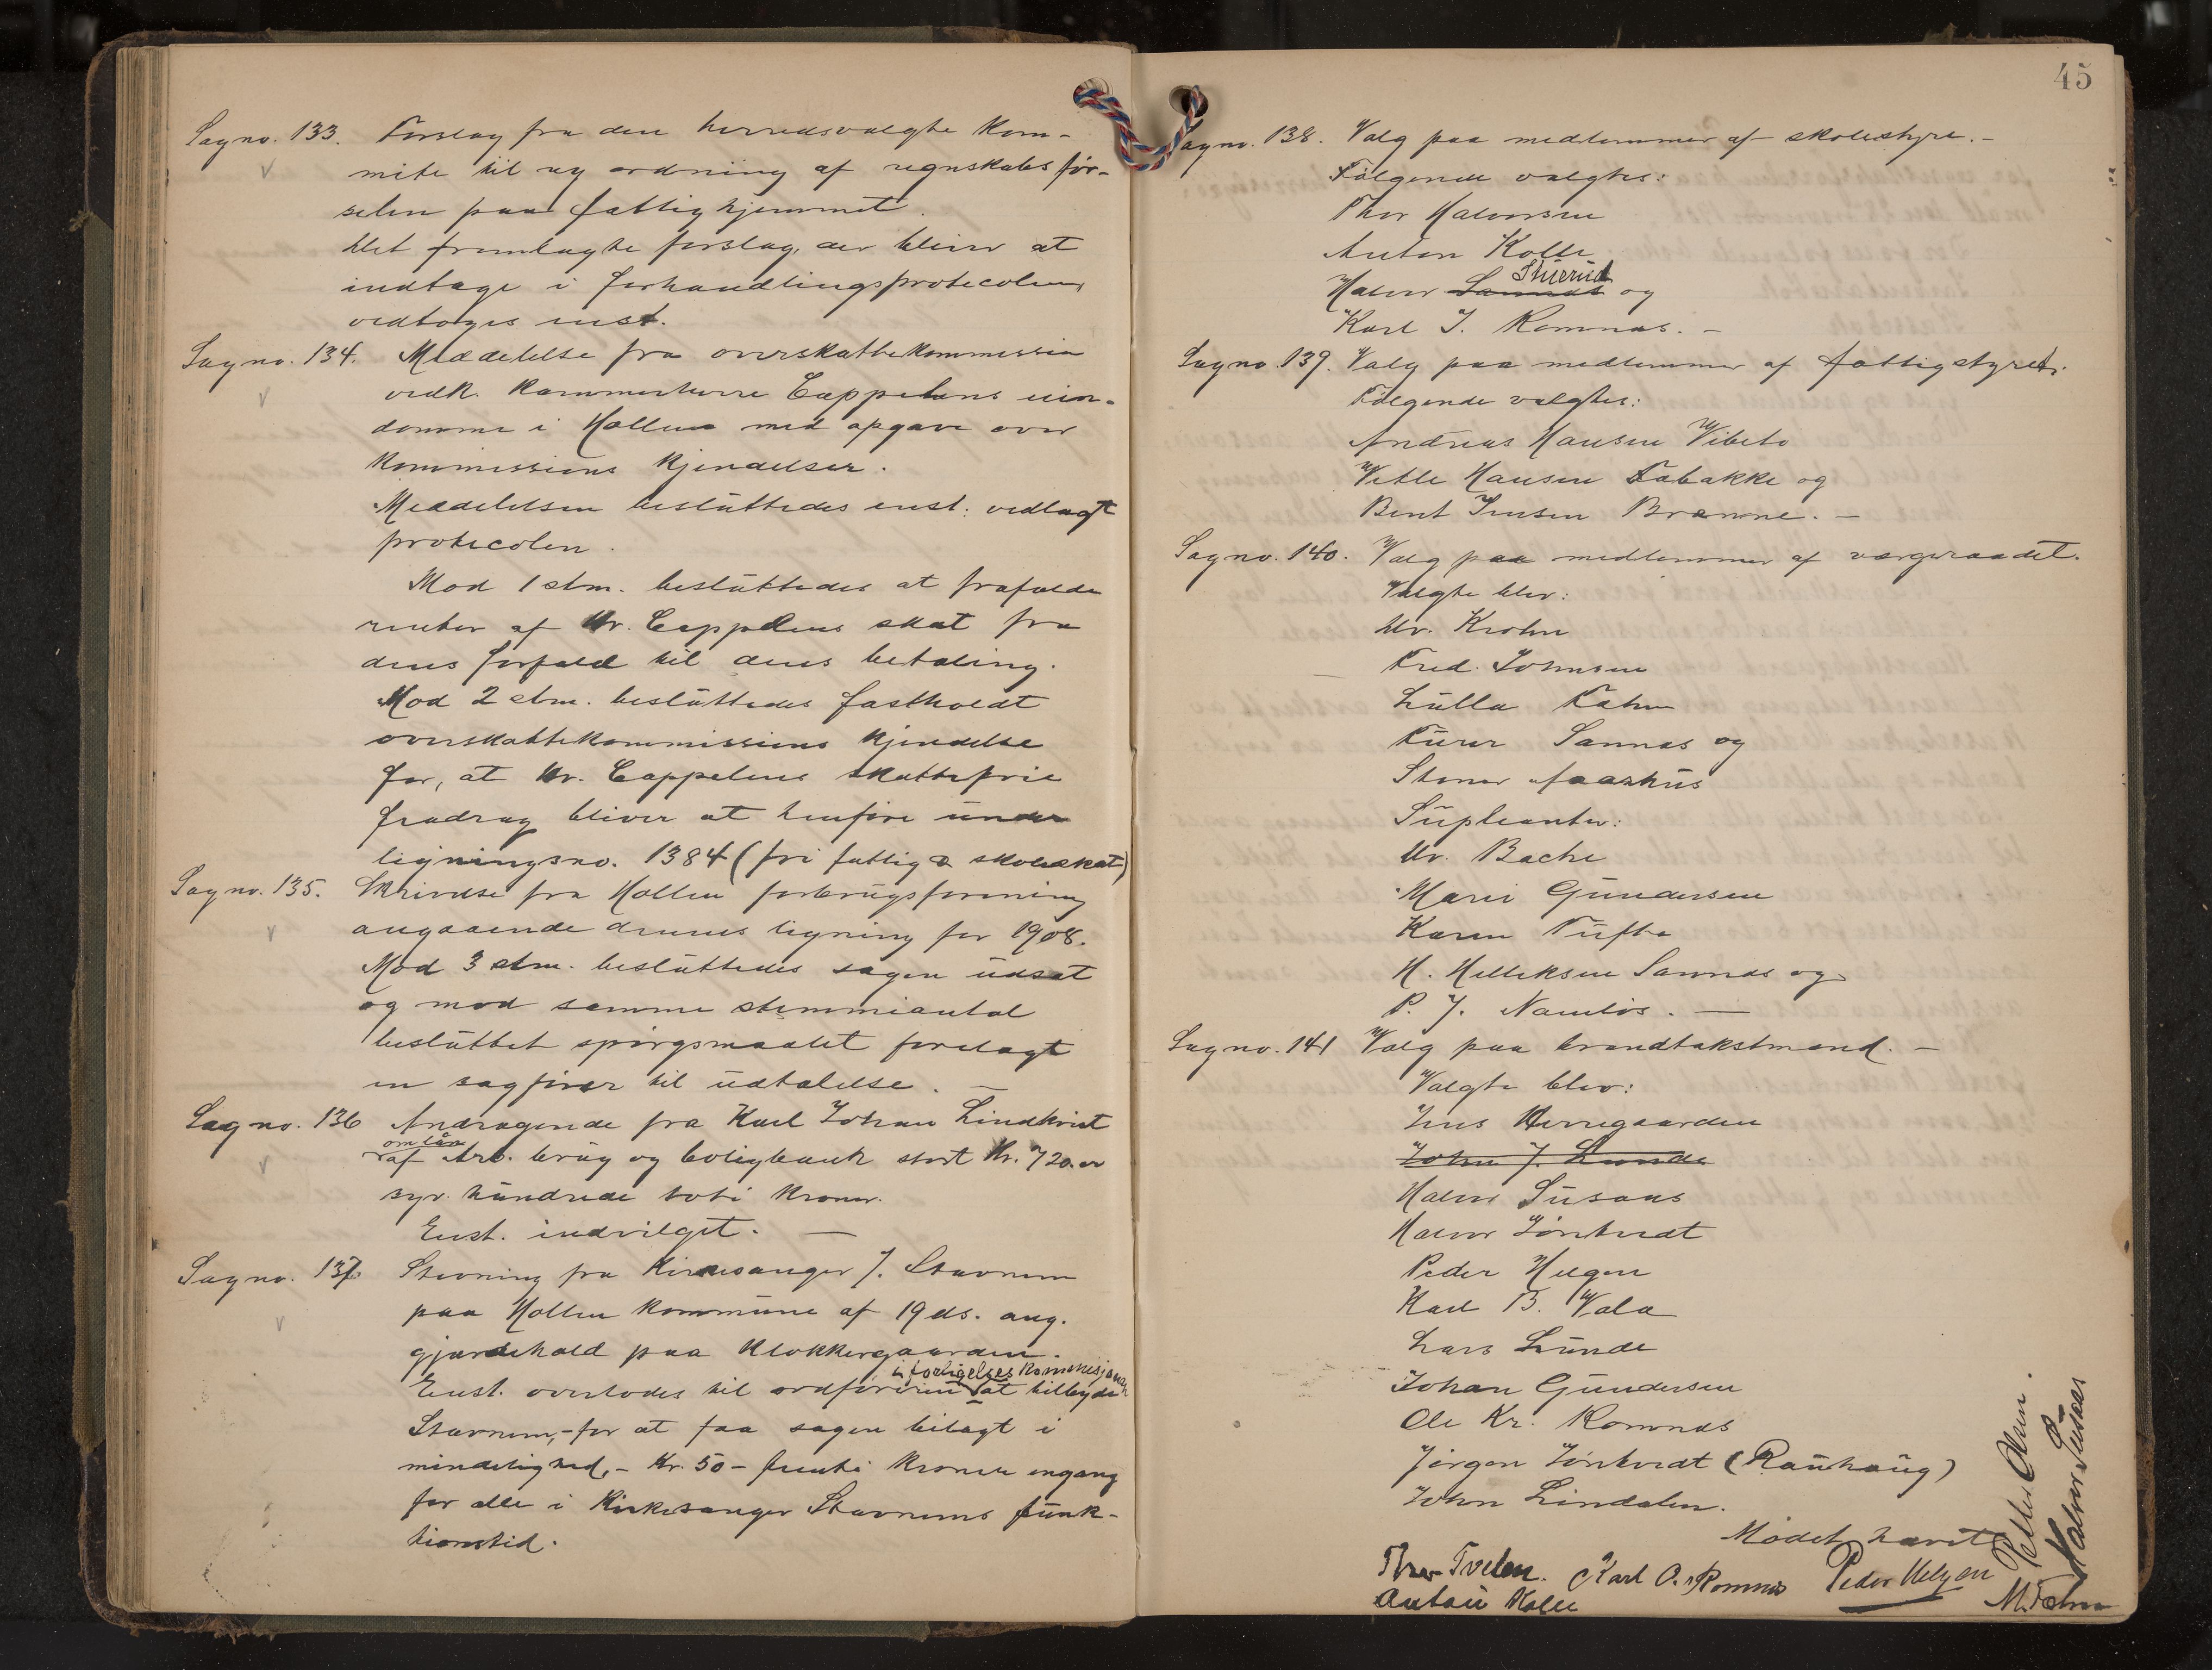 Sag no. 133. Forslag fra den herredsvalgte kom-
mite til ny ordning af regnskabsför-
selen paa fattighjemmet.
Det fremlagte forslag, der bliver at
indtage i forhandlingsprotocolen,
vedtoges enst.
Sag no. 134. Meddelelse fra overskattekommissionen
vedk. Kammerherre Cappelens eien-
domme i Hollen med opgave over
kommissions kjendelser.
Meddelelsen besluttedes enst. vedlagt
protocolen.
Mod 1 stm. besluttedes at frafalde
renter af Hr. Cappelens skat fra
dens forfald til dens betaling.
Mod 2 stm. besluttedes fastholdt
overskattekommissions kjendelse
for, at Hr. Cappelens skattefrie
fradrag bliver at henföre under
ligningsno. 1384 (fri fattig & skoleskat)
Sag no. 135. Skrivelse fra Hollen forbrugsforening
angaaende dennes ligning for 1908.
Mod 3 stm. besluttedes sagen udsat
og mod samme stemmeantal
besluttet spörgsmaalet forelagt
en sagförer til udtalelse. —
Sag no. 136 Andragende fra Karl Johan Lindkvist
om lån
af Arb. brug og boligbank stort Kr. 720. er
syv hundrede toti kroner.
Enst. indvilget. —
Sag no. 137 Stevning fra kirkesanger J. Stavnum
paa Hollen kommune af 19 ds. ang.
gjærdehold paa Klokkergaarden.
i forligelses kommisjonen
Enst. overlodes til ordföreren at tilbyde
Stavnum, - for at faa sagen bilagt i
mindelighed, - Kr. 50 - femti kroner engang
for alle i Kirkesanger Stavnums funk-
tionstid.
45
Sag no. 138. Valg paa medlemmer af skolestyre. -
Fölgende valgtes:
Thor Halvorsen
Anton Kolle
Stuerud
Halvor Sannæs og
Karl J. Romnæs. -
Sag no. 139. Valg paa medlemmer af fattigstyret.
Fölgende valgtes:
Andreas Hansen Vibeto
Vetle Hansen Tabakke og
Bent Jensen Brænne. -
Sag no. 140. Valg paa medlemmer af vergeraadet.
Valgte blev:
Dr. Krohn
Fred. Johnsen
Lulla Fahn
Turer Sannæs og
Stener Aaarhus
Supleanter:
Dr. Bache
Marie Gundersen
Karen Tufte
H. Helleksen Sannæs og
P. J. Namlös. —
Sag no. 141 Valg paa brandtakstmænd. -
Valgte blev:
Jens Herregaarden
John J. Lunde
Halvor Susaas
Halvor Jöntvedt
Peder Helgen
Karl B. Vala
Lars Lunde
Johan Gundersen
Ole Kr. Romnæs
Jörgen Jöntvedt (Rauhaug)
John Lindalen.
Mödet hævet
Thor Tveten. Karl O. Romnæs Peder Helgen
Anton Kolle M. Fahn
Peder Olsen.
Halvor Susaas